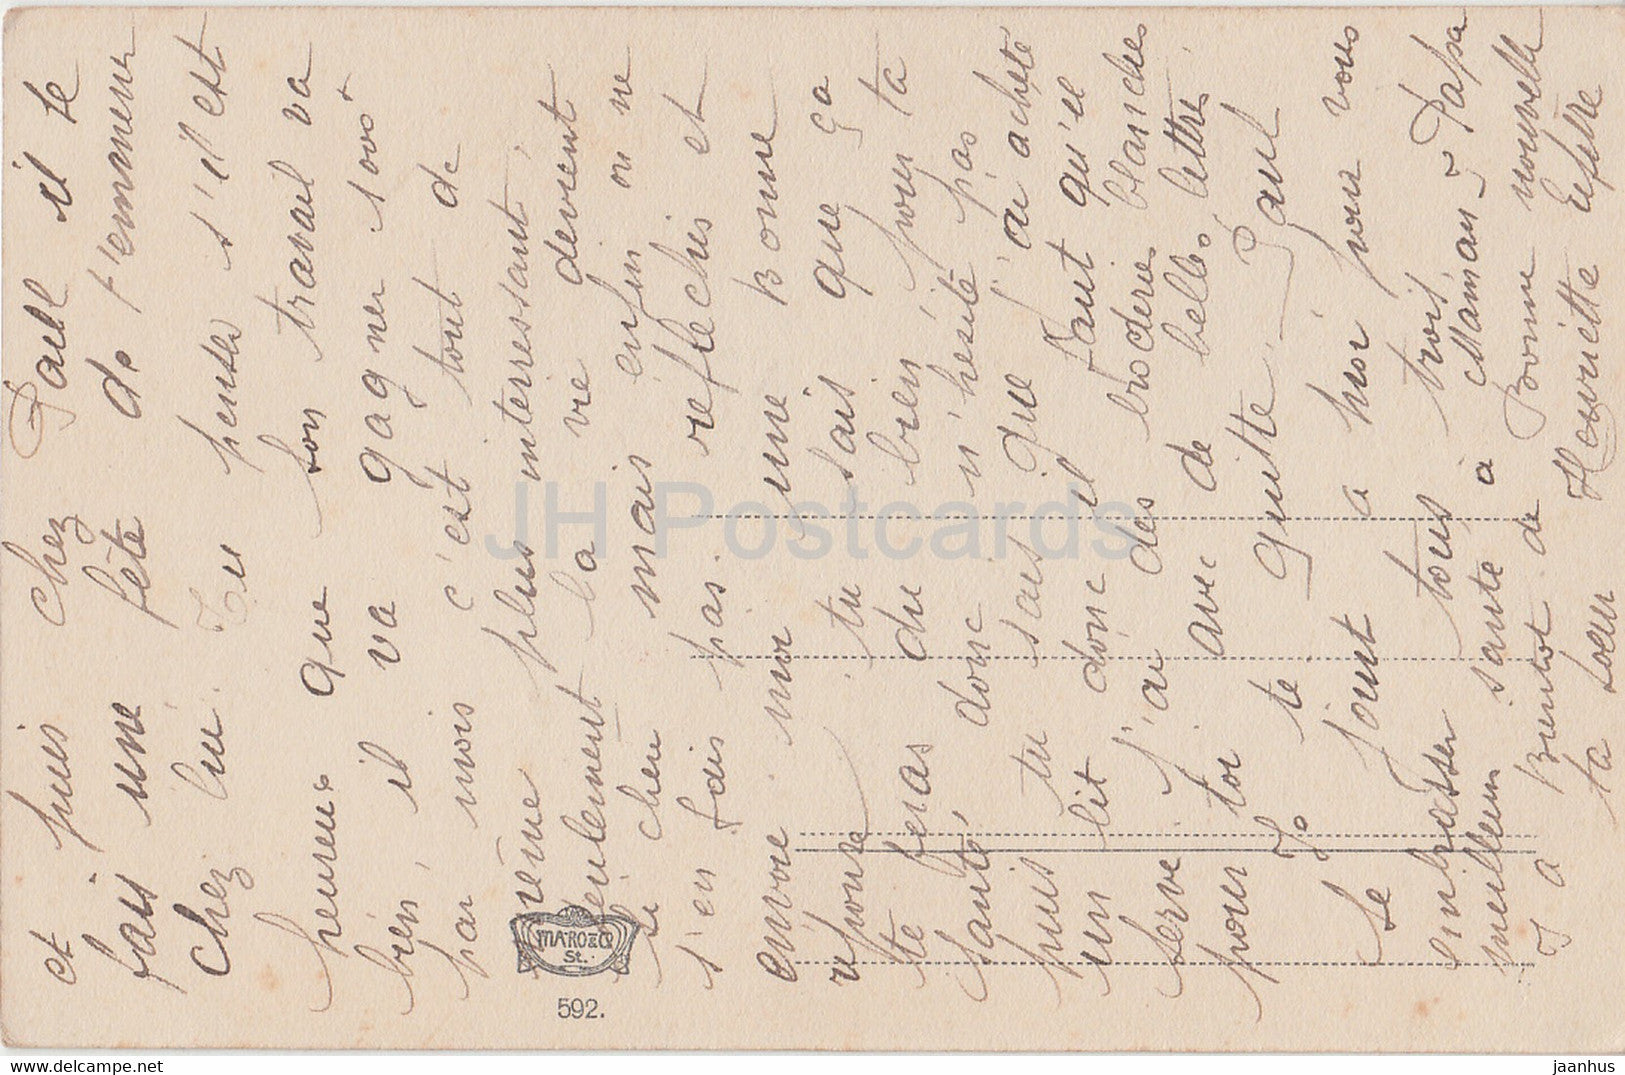 et puis chez Paul il te
fais une fête de t'emmener
chez lui. Tu penses s'il est
heureux que son travail va
bien, il va gagner 1000 f
par mois c'est tout de
même plus interressant,
seulement la vie devient
si cher mais enfin on ne
s'en fais pas. reflechis et
envoie moi une bonne
reponse. tu sais que ça
te feras du bien pour ta
santé, donc n'hesite pas
puis tu sais que j'ai acheté
un lit donc il faut qu'il
serve j'ai des broderies blanches
pour toi avec de belles lettres
Je te quitte. Paul
se joint a moi pour vous
embrasser tous trois
meilleure santé à Maman & Papa
A Bientot de Bonne nouvelle
ta soeur Henriette
MARO & Co
St.
592.
JH Postcards
jaanhus